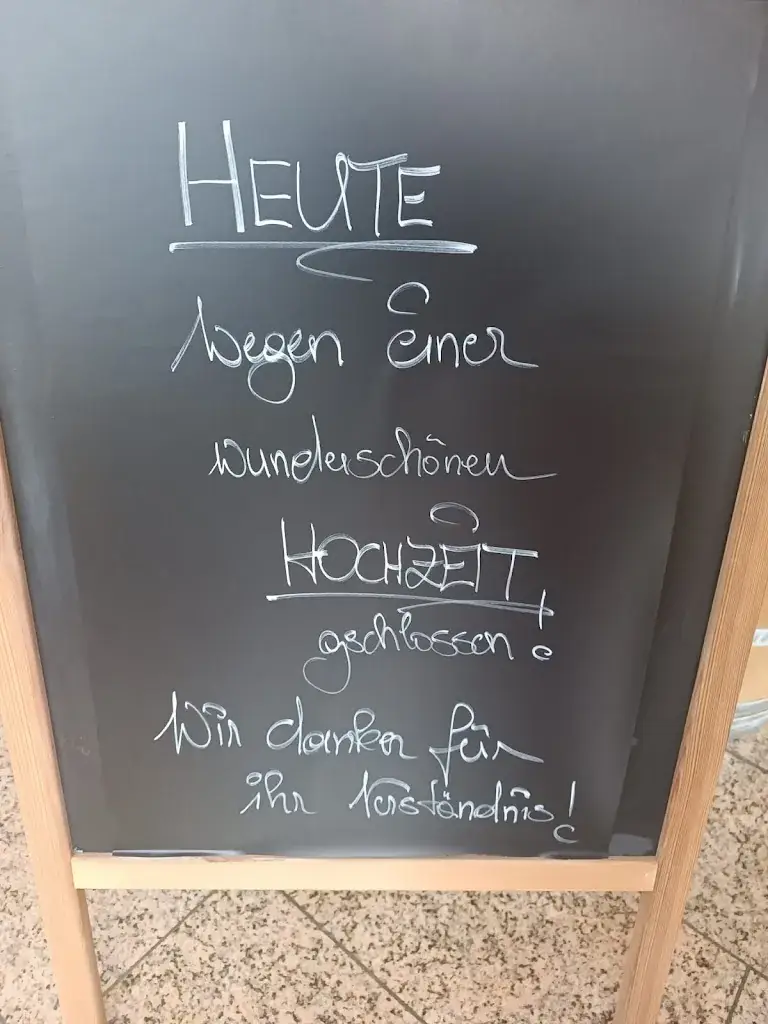 HEUTE
wegen Einer
wunderschönen
HOCHZEIT
gschlossen!
Wir danken für
ihr Verständnis!